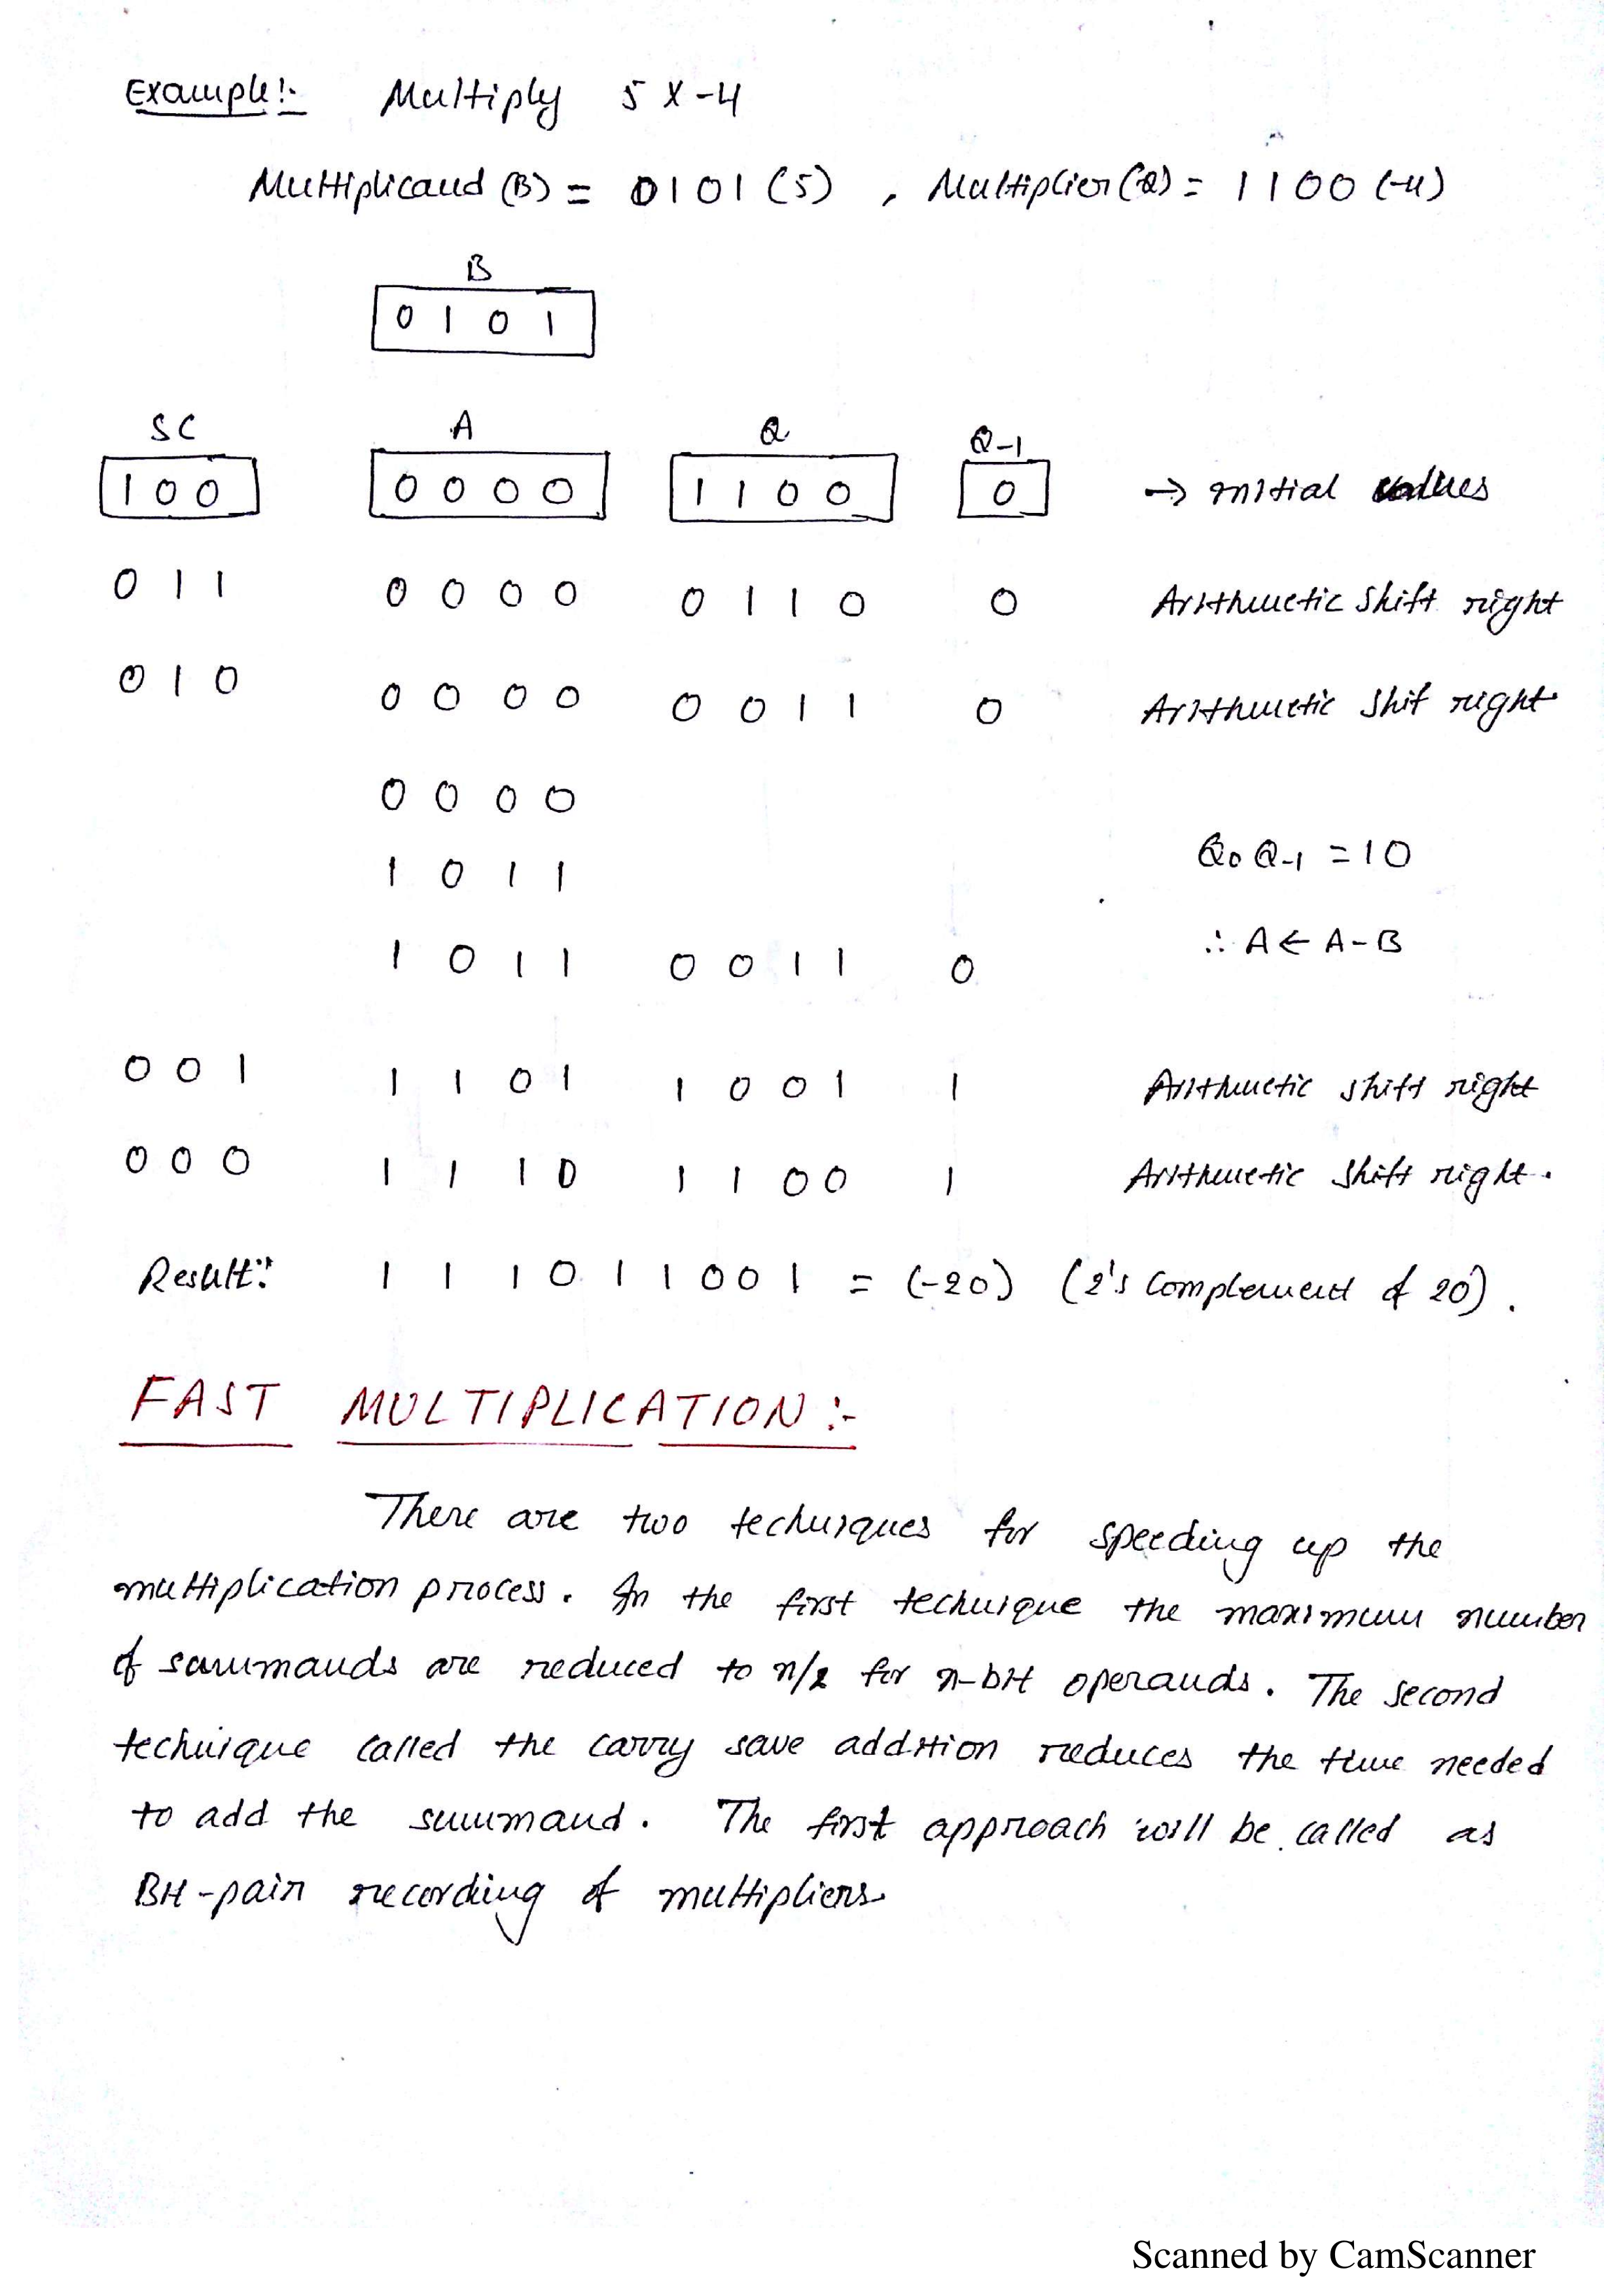 Example:- Multiply 5 X -4
Multiplicand (B) = 0101 (5) , Multiplier (Q) = 1100 (-4)
B
0 1 0 1
SC A Q Q-1
1 0 0 0 0 0 0 1 1 0 0 0 → initial values
0 1 1 0 0 0 0 0 1 1 0 0 Arithmetic Shift right
0 1 0 0 0 0 0 0 0 1 1 0 Arithmetic Shif right
0 0 0 0
1 0 1 1 Q0 Q-1 = 10
1 0 1 1 0 0 1 1 0 ∴ A ← A - B
0 0 1 1 1 0 1 1 0 0 1 1 Arithmetic shift right
0 0 0 1 1 1 0 1 1 0 0 1 Arithmetic Shift right.
Result:- 1 1 1 0 1 1 0 0 1 = (-20) (2's Complement of 20).
FAST MULTIPLICATION :-
There are two techniques for speeding up the
multiplication process. In the first technique the maximum number
of summands are reduced to n/2 for n-bit operands. The second
technique called the carry save addition reduces the time needed
to add the summand. The first approach will be called as
Bit-pair recording of multipliers
Scanned by CamScanner